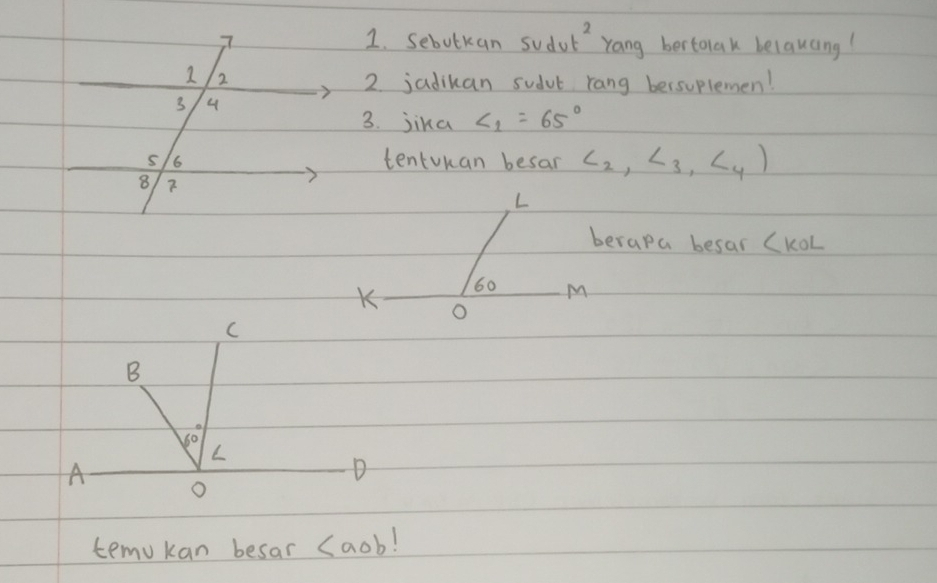 1. Sebutkan sudut² yang bertolak belakang!
2. jadikan sudut yang bersuplemen!
3. jika <₁ = 65°
tentukan besar <₂, <₃, <₄)
1 2
3 4
5 6
8 7
L
berapa besar <KOL
60
K M
O
C
B
60°
<
A D
O
temukan besar <aob!